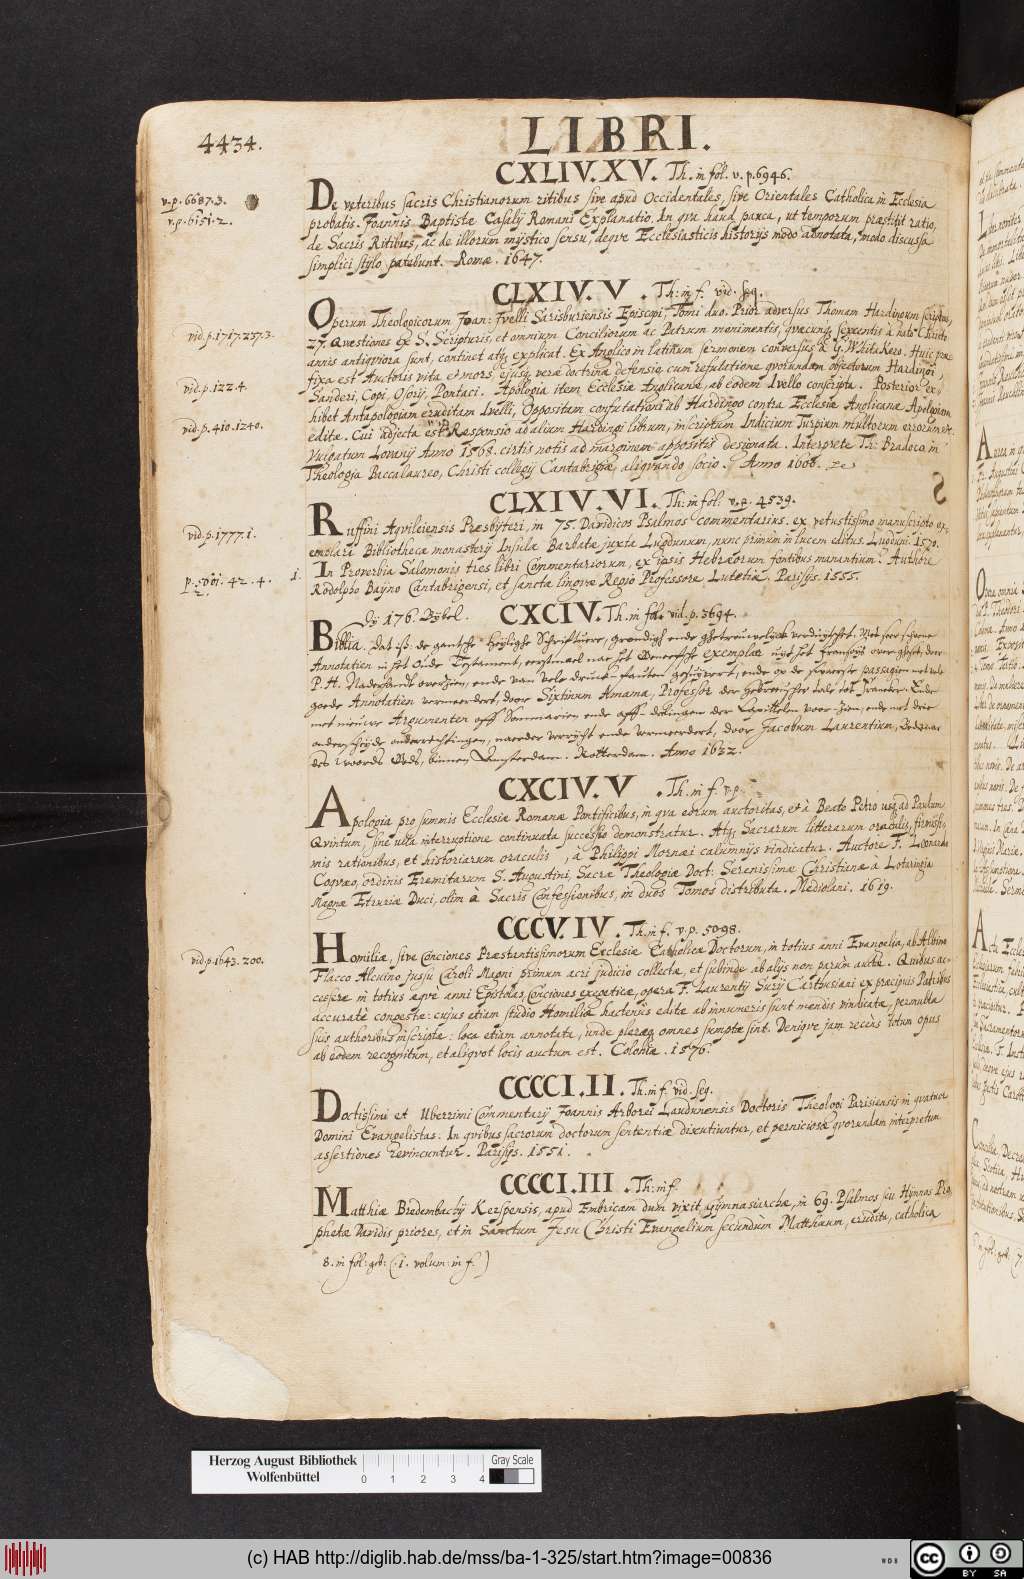 4434.
LIBRI.
CXLIV. XV. Th. in fol. v. p. 6946.
v. p. 6687. 3.
v. p. 6151. 2.
De veteribus sacris Christianorum ritibus sive apud Occidentales, sive Orientales Catholica in Ecclesia
probatis. Joannis Baptistæ Casalij Romani Explanatio. In qva haud pauca, ut temporum præstitit ratio,
de Sacris Ritibus, ac de illorum mystico sensu, deqve Ecclesiasticis historijs modo adnotata, modo discussa
simplici stylo patebunt. Romæ. 1647.
CLXIV. V. Th: in f. vid. seq.
Operum Theologicorum Joan: Ivelli Sarisburiensis Episcopi, Tomi duo. Prior adversus Thomam Hardingum scriptus,
vid. p. 1717. 257. 3.
27. Qvæstiones ex S. Scripturis, et omnium Conciliorum ac Patrum monimentis, qvæcunq sexcentis à nato Christo
annis antiqviora sunt, continet atq explicat. Ex Anglico in latinum sermonem conversus à G. Whitakero. Huic præ-
fixa est Autoris vita et mors ejusq veræ doctrinæ defensio, cum refutatione qvorundam objectorum Hardingi,
vid. p. 122. 4.
Sanderi, Copi, Osorij, Pontaci. Apologia item Ecclesiæ Anglicanæ, ab eodem Ivello conscripta. Posterior ex-
hibet Antapologiam eruditam Ivelli, Oppositam confutationi ab Hardingo contra Ecclesiæ Anglicanæ Apologiam
vid. p. 410. 1240.
editæ. Cui adjecta est Responsio ad alium Hardingi librum, inscriptum Indicium Turpium multorum errorum
vulgatum Lovanij Anno 1568. certis notis ad marginem appositis designata. Interprete Th: Bradoco in
Theologia Baccalaureo, Christi collegij Cantabrigiæ, aliqvando socio. Anno 1600.
CLXIV. VI. Th: in fol: v. p. 4539.
vid. p. 1777. 1.
Ruffini Aqvileiensis Præsbyteri, in 75. Davidicos Psalmos commentarius. ex vetustissimo manuscripto ex-
emplari Bibliothecæ monasterij Insulæ Barbatæ juxta Lugdunum, nunc primùm in lucem editus. Lugduni. 1570.
p. 42. 4.
1. In Proverbia Salomonis tres libri Commentariorum, ex ipsis Hebræorum fontibus manantium. Authore
Rodolpho Bayno Cantabrigensi, et sanctæ lingvæ Regio Professore Lutetiæ. Parisijs. 1555.
176. Bybel. CXCIV. Th. in fol. vid. p. 3694.
Biblia. Dat is: de gantsche Heylighe Schrifture, grondigh ende ghetrouwelyck verduytschet. Met seer schoone
Annotatien in het Oude Testament, eerstmael nae het Geneefsche exemplar uyt het Françoys over gheset, door
P. H. ende van vele druck-fauten gesuyvert, ende op de swaerste passagien met vele
goede Annotatien vermeerdert, door Sixtinum Amama, Professor der Hebreischer tale tot Franeker. Ende
met nieuwe Argumenten offt Sommarien ende der Capittelen voor-sien, ende met drie
onderscheyde onderrechtingen, naerder verrijckt ende vermeerdert, door Jacobum Laurentium, Dienaar
des Woords Gods, binnen Amsterdam. Rotterdam. Anno 1632.
CXCIV. V. Th. in f. v. p.
Apologia pro summis Ecclesiæ Romanæ Pontificibus, in qva eorum auctoritas, et à Beato Petro usq ad Paulum
Qvintum, sine ulla interruptione continuata successio demonstratur. Atq Sacrarum litterarum oraculis, firmissi-
mis rationibus, et historiarum oraculis, à Philippi Mornæi calumnijs vindicatur. Auctore F. Leonardo
Coqvæo, ordinis Eremitarum S. Augustini, Sacræ Theologiæ Doct: Serenissimæ Christianæ à Lotaringia
Magnæ Etruriæ Duci, olim à Sacris Confessionibus, in duos Tomos distributa. Mediolani. 1619.
CCCV. IV. Th. in f. v. p. 5098.
vid. p. 1643. 200.
Homiliæ, sive Conciones Præstantissimorum Ecclesiæ Catholicæ Doctorum, in totius anni Evangelia, ab Albino
Flacco Alcuino, jussu Caroli Magni primum acri judicio collectæ, et subinde ab alijs non parùm auctæ. Qvibus ac-
cessere in totius æqve anni Epistolas Conciones exegeticæ, opera F. Laurentij Surij Carthusiani ex præcipuis Patribus
accuratè congestæ: cujus etiam studio Homiliæ hactenus editæ ab innumeris sunt mendis vindicatæ, permultæ
suis authoribus inscriptæ: loca etiam annotata, unde pleræq omnes sumptæ sint. Deniqve jam recèns totum opus
ab eodem recognitum, et aliqvot locis auctum est. Coloniæ. 1576.
CCCCI. II. Th. in f. vid. seq.
Doctissimi et Uberrimi Commentarij Joannis Arborei Laudunensis Doctoris Theologi Parisiensis in qvatuor
Domini Evangelistas: In qvibus sacrorum doctorum sententiæ discutiuntur, et perniciosæ qvorundam interpretum
assertiones revincuntur. Parisijs. 1551.
CCCCI. III. Th: in f.
Matthiæ Bredembachij Kerspensis, apud Embricam dum vixit gymnasiarchæ, in 69. Psalmos seu Hymnos Pro-
phetæ Davidis priores, et in Sanctum Jesu Christi Evangelium secundùm Matthæum, erudita, catholica
8. in fol: geb: (. 1. volum: in f.)
Herzog August Bibliothek
Wolfenbüttel
0 1 2 3 4
Gray Scale
(c) HAB http://diglib.hab.de/mss/ba-1-325/start.htm?image=00836
WDB
cc BY SA